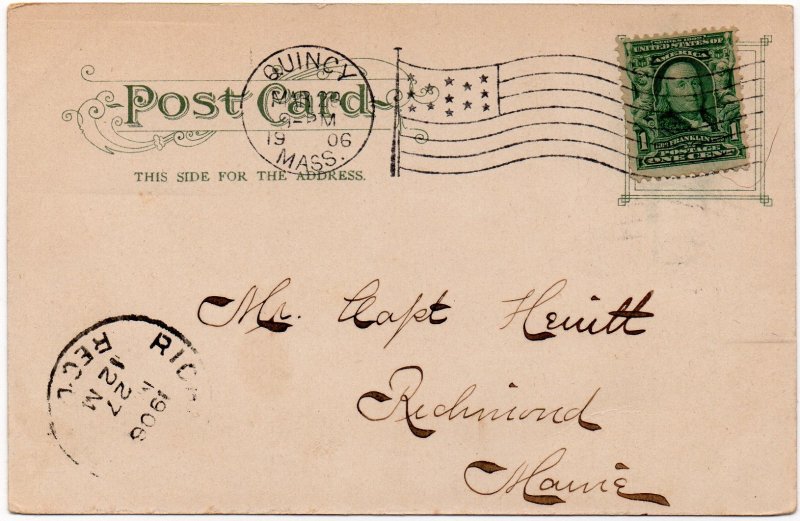 Post Card
THIS SIDE FOR THE ADDRESS.
QUINCY
PM
19 06
MASS.
SERIES 1902
UNITED STATES OF
AMERICA
1 FRANKLIN 1
POSTAGE
ONE CENT
Mr. Capt Hewitt
Richmond
Maine
REC'D
1906
27
12 M